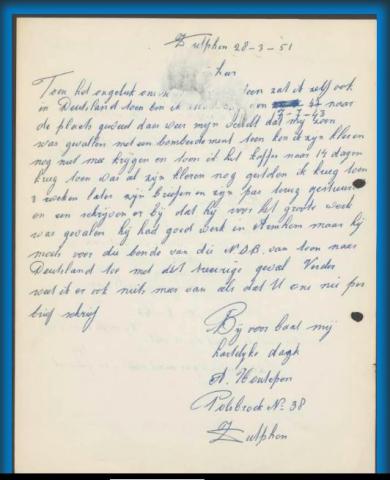 Zutphen 28-3-51
Heer
Toen het ongeluk zat ik zelf ook
in Deutsland toen ben ik 7-7-43 naar
de plaats geweest daar weer mijn dat mij zoon
was gevallen met een bomberdement toen kon ik zijn kleren
nog niet mee krijgen en toen ik het koffer naar 14 dagen
kreeg toen was al zijn kleren nog gestolen ik kreeg toen
3 weeken later zijn briefen en zijn pas terug gestuurd
en een schrijven er bij dat hij voor het groote werk
was gevalen hij had goed werk in Arnhem maar hij
moest voor die bende van die N.S.B. van toen naar
Deutsland toe met dit treurige geval Verder
weet ik er ook niets meer van als dat U ons nu per
brief schrijf
Bij voor baat mij
hartelyke dagh
A. Houtepen
Polsbroek No 38
Zutphen